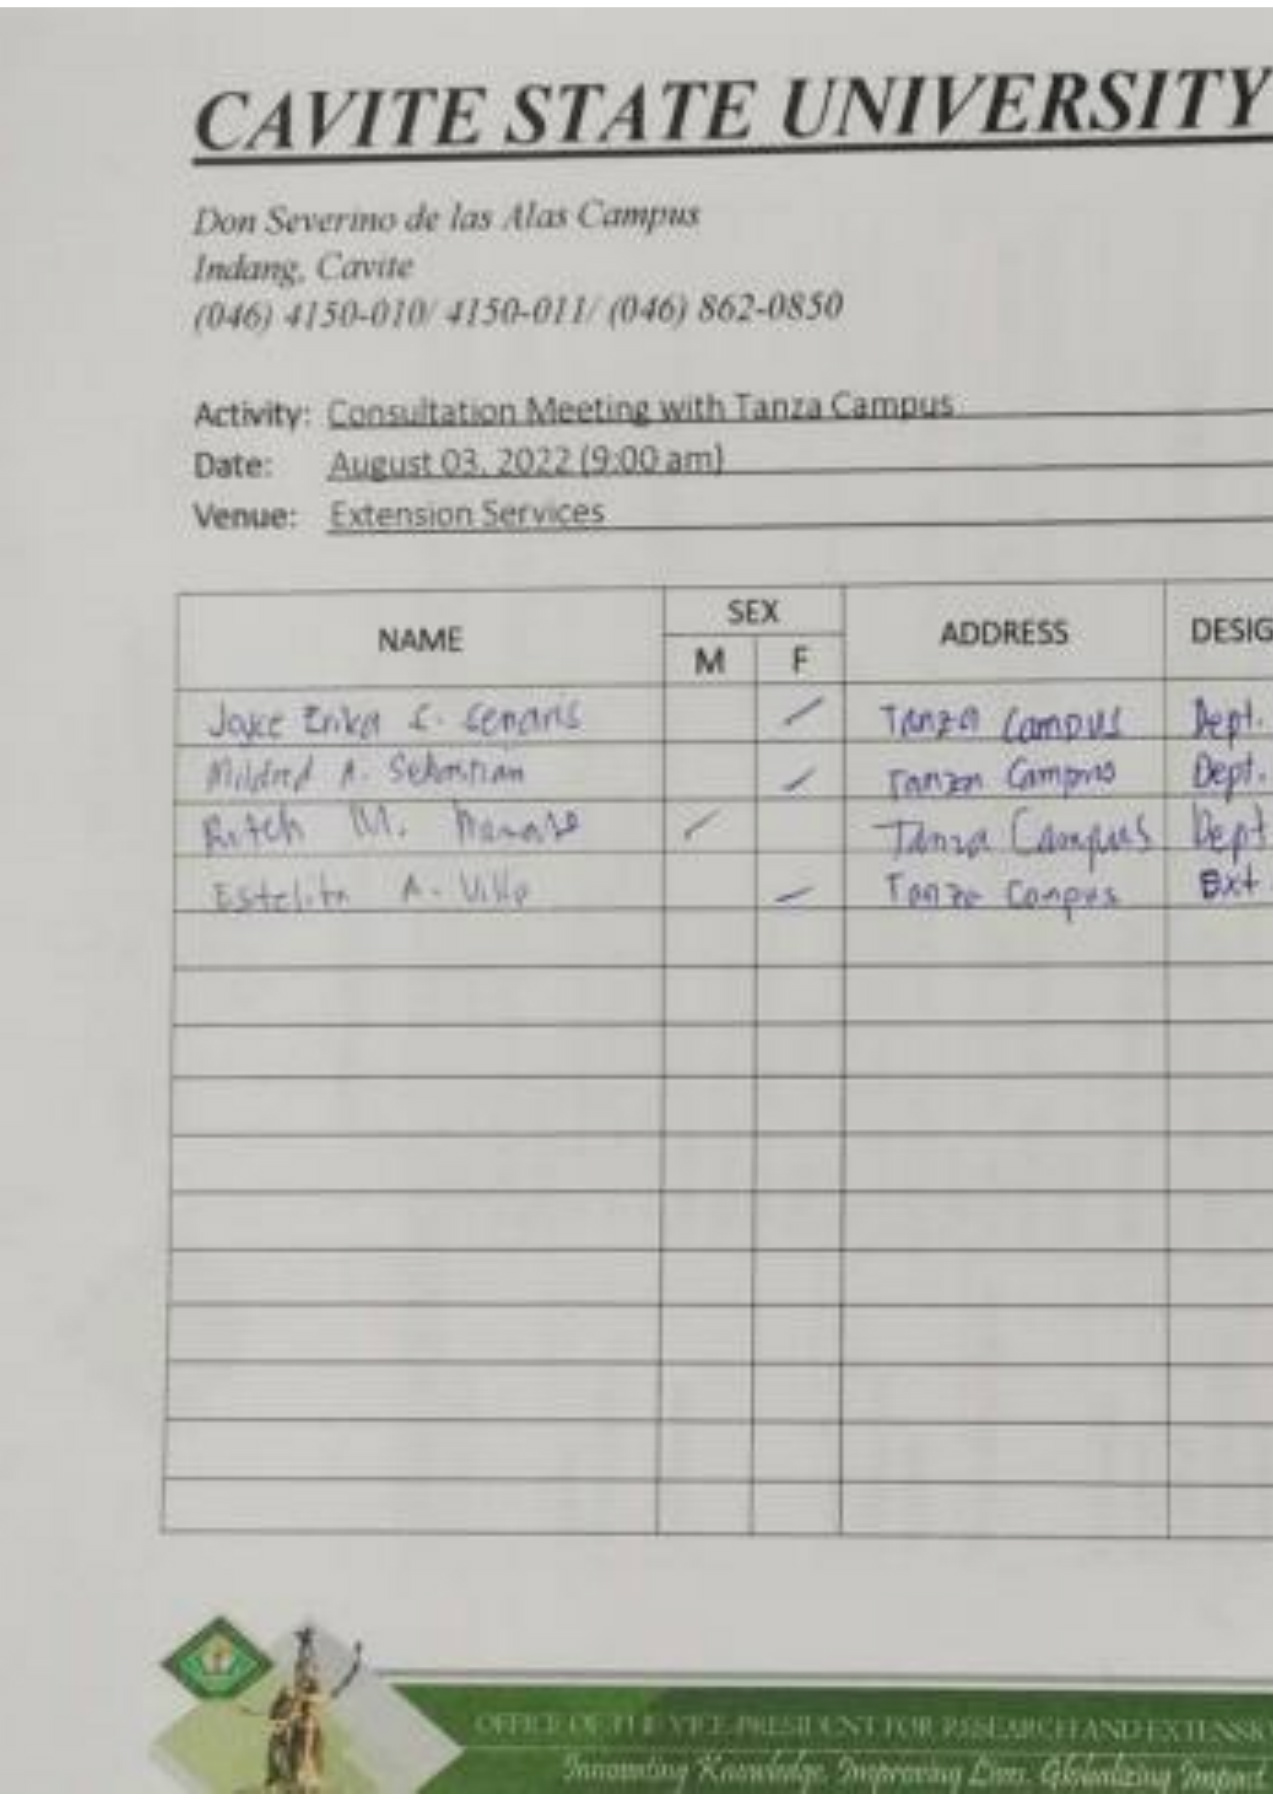 CAVITE STATE UNIVERSITY
Don Severino de las Alas Campus
Indang, Cavite
(046) 4150-010/ 4150-011/ (046) 862-0850
Activity: Consultation Meeting with Tanza Campus
Date: August 03, 2022 (9:00 am)
Venue: Extension Services
NAME SEX ADDRESS DESIG
M F
Joyce Erika C. Senaris Tanza Campus Dept.
Mildred A. Sebastian Tanza Campus Dept.
Ritch M. Tanza Campus Dept
Estelita A. Villa Tanza Campus Ext.
OFFICE OF THE VICE-PRESIDENT FOR RESEARCH AND EXTENSI
Innovating Knowledge. Improving Lives. Globalizing Impact.